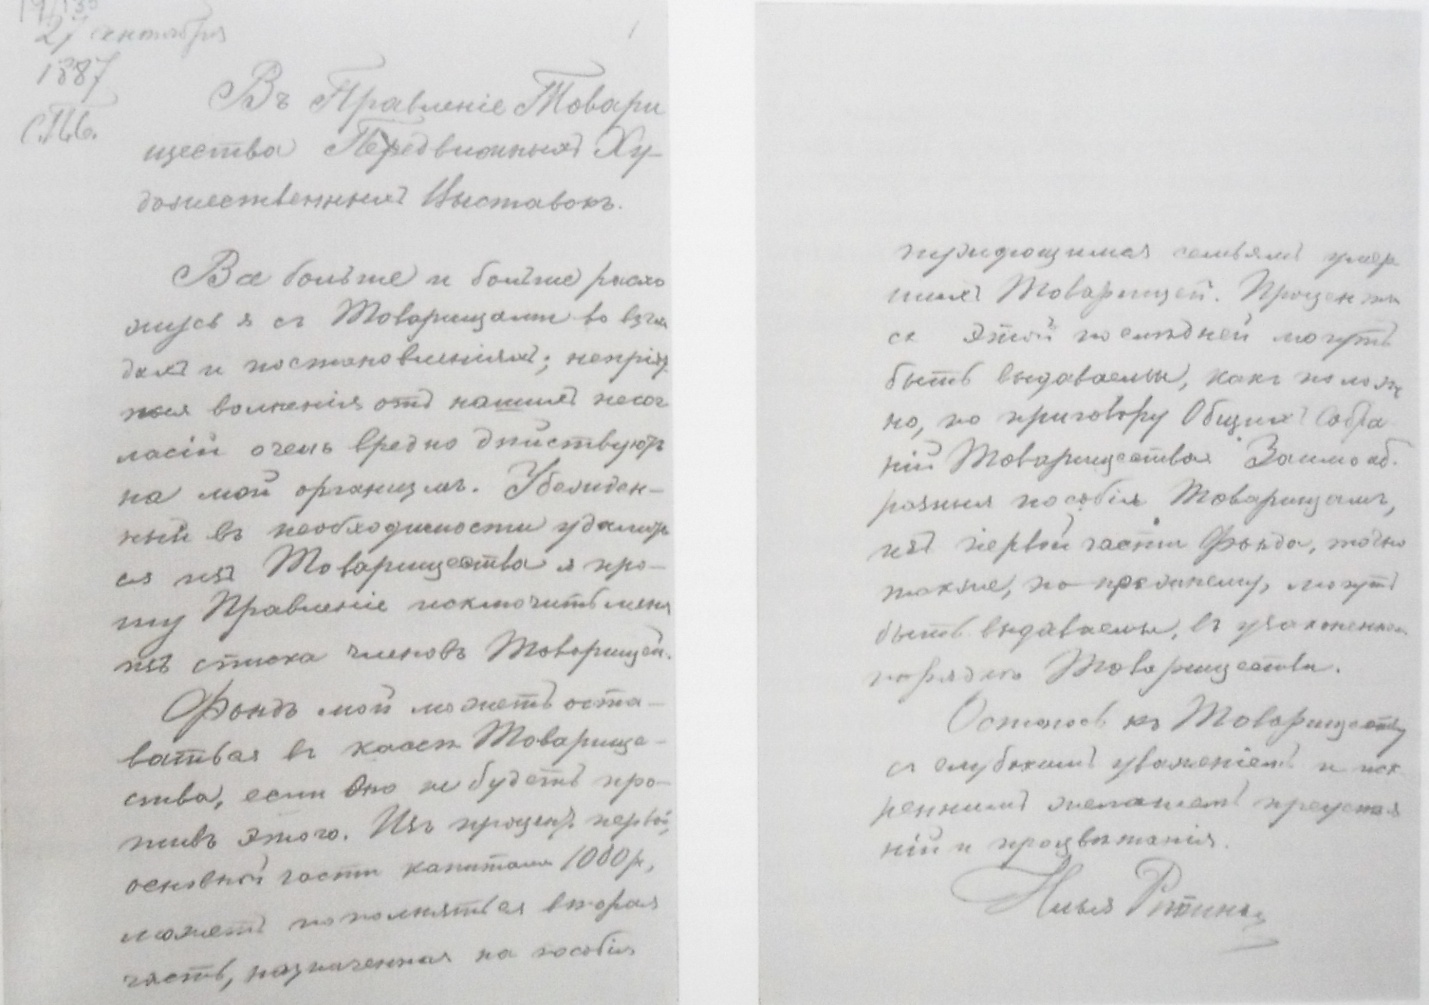 27 сентября
1887
С.П.б.
Въ Правленіе Товари
щества Передвижныхъ Ху-
дожественныхъ Выставокъ.
Все больше и больше расхо
жусь я съ Товарищами во взгля
дахъ и постановленіяхъ; непріят
ныя волненія отъ нашихъ несог
ласій очень вредно дѣйствуютъ
на мой организмъ. Убежден-
ный въ необходимости удалить
ся изъ Товарищества я про-
шу Правленіе исключить меня
изъ списка членовъ Товарищей.
Фондъ мой можетъ оста-
ваться въ кассѣ Товарище-
ства, если оно не будетъ про-
тивъ этого. Изъ процент. первой,
основной части капитала 1000 р.,
можетъ пополняться вторая
часть, назначенная на пособія
нуждающимся семьямъ умер
шихъ Товарищей. Проценты
съ этой послѣдней могутъ
быть выдаваемы, какъ полож
но, по приговору Общихъ Собра
ній Товарищества. Заимооб-
разныя пособія Товарищамъ,
изъ первой части Фонда, точно
также, по прежнему, могутъ
быть выдаваемы, въ узаконенном
порядкѣ Товарищества.
Остаюсь къ Товариществу
съ глубокимъ уваженіемъ и иск
реннимъ желаніемъ преуспея
ній и процвѣтанія.
Илья Рѣпинъ